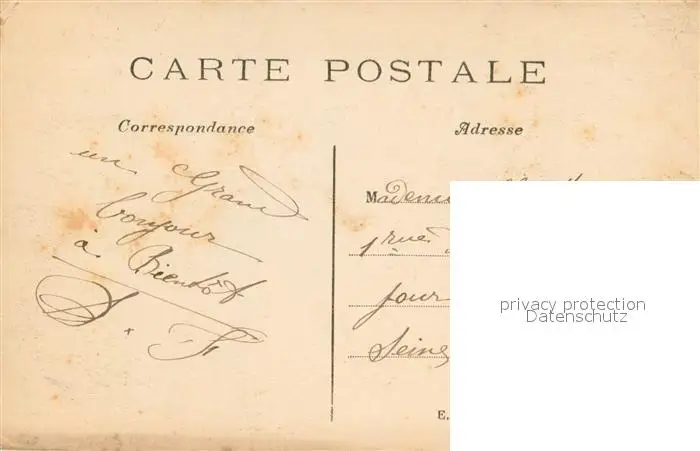 CARTE POSTALE
Correspondance
un Grand
bonjour
à Bientôt
Adresse
Madem
1 rue
Seine
E.
privacy protection
Datenschutz